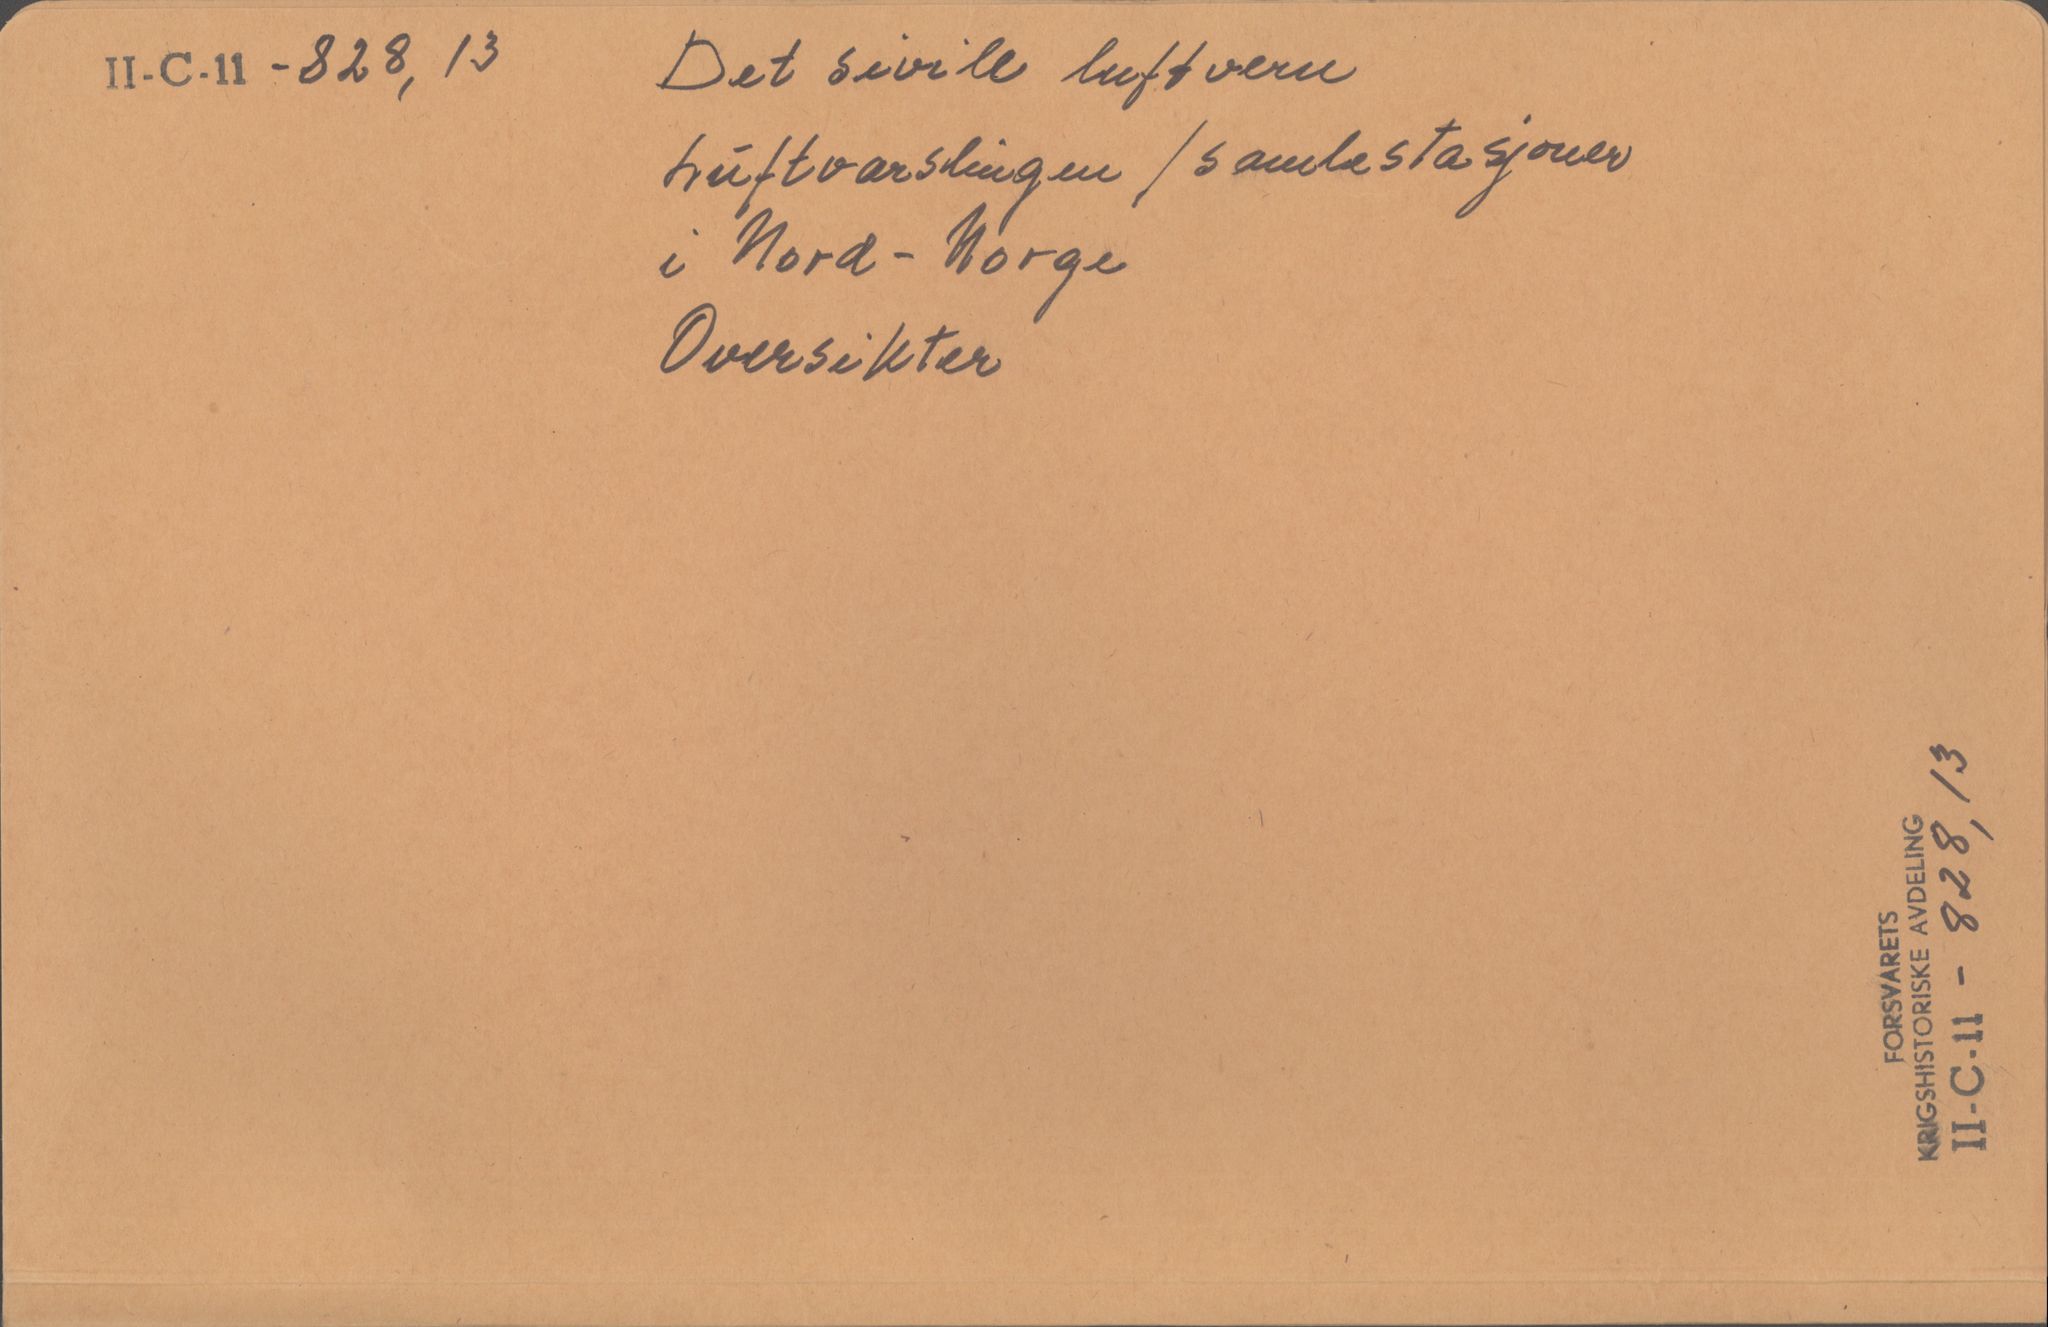 II-C-11 - 828, 13
Det sivile luftvern
Luftvarslingen / samlestasjoner
i Nord-Norge
Oversikter
FORSVARETS
KRIGSHISTORISKE AVDELING
II-C-11 - 828, 13